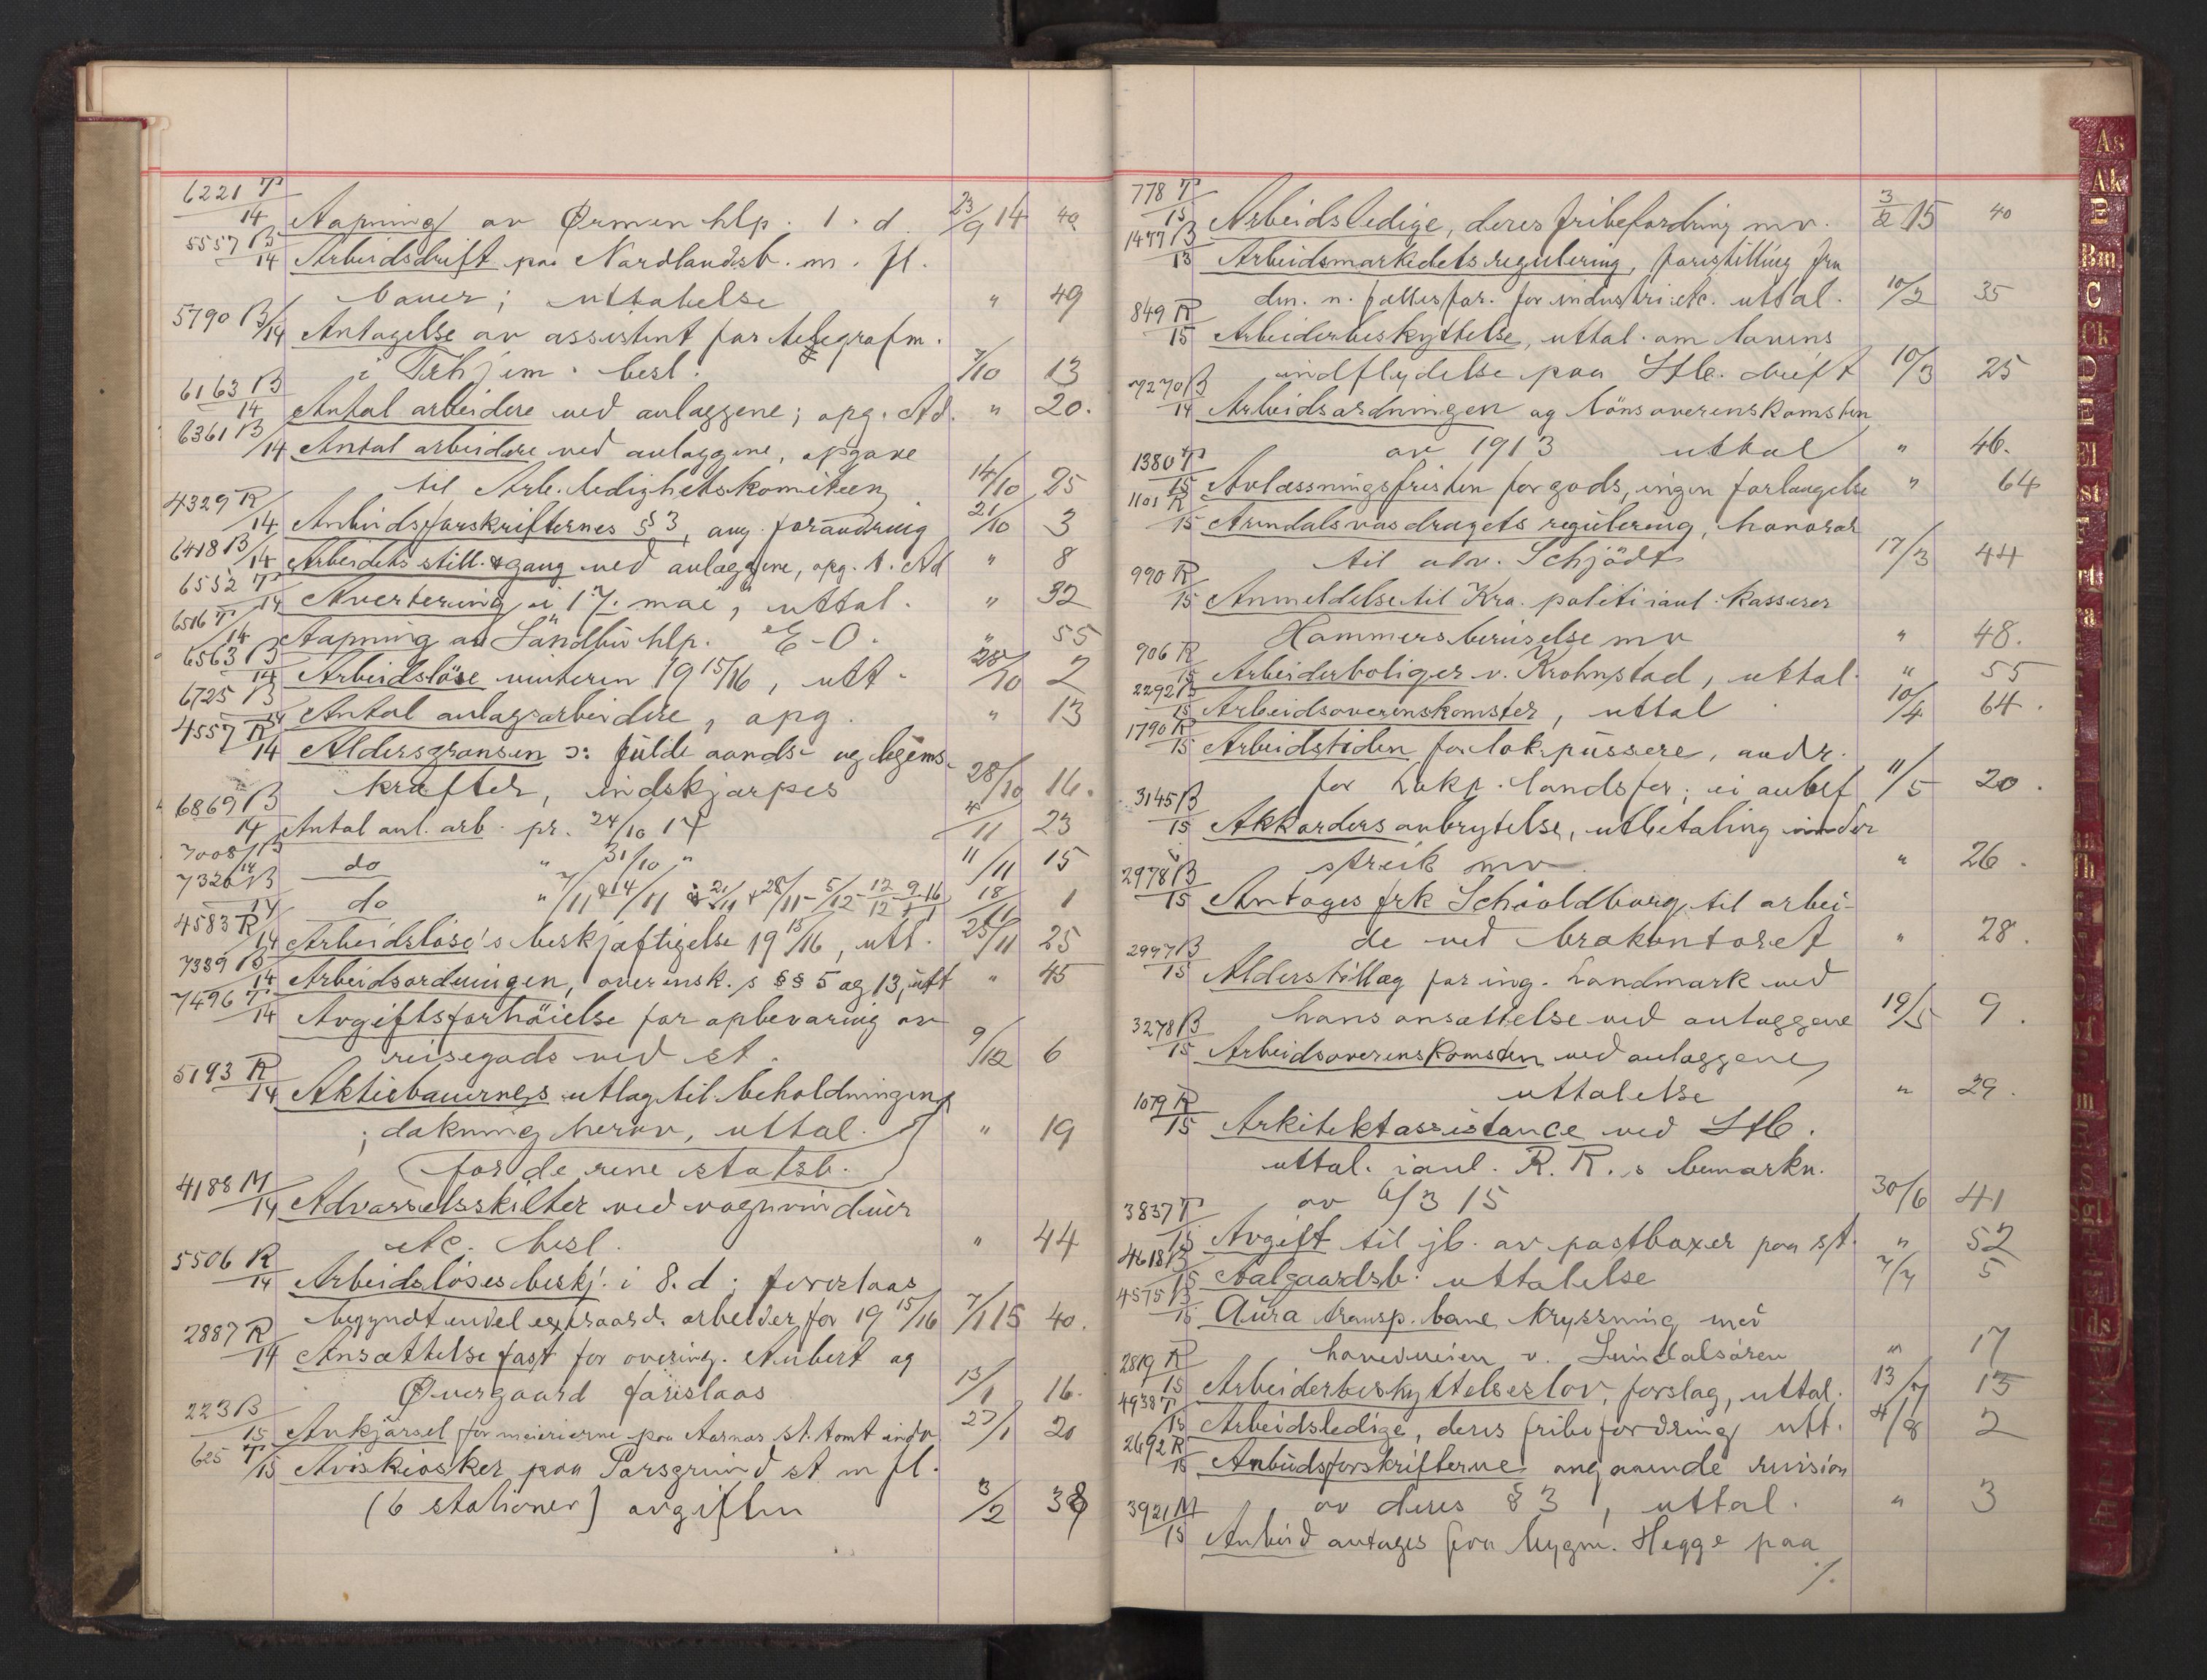 6221 T/14 Aapning av Ørmen hlp. 1. d. 23/9 14 40
5557 B/14 Arbeidsdrift paa Nordlandsb. m. fl.
baner; uttalelse " 49
5790 B/14 Antagelse av assistent for telegrafm.
i Trhjem. besl. 7/10 13
6163 B/14 Antal arbeidere ved anlæggene; opg. Ad. " 20.
6361 B/14 Antal arbeidere ved anlæggene, opgave
til Arb.ledighetskomiteen 14/10 25
4329 R/14 Anbudsforskrifternes § 3, ang. forandring 21/10 3
6418 B/14 Arbeidets still. & gang ved anlæggene, opg. t. Ad " 8
6552 T/14 Avertering i 17. mai, uttal. " 32
6516 T/14 Aapning av Sandbu hlp. E-O. " 55
6563 B/14 Arbeidsløse vinteren 19 15/16, utt. 28/10 2
6725 B/14 Antal anlægsarbeidere, opg. " 13
4557 R/14 Aldersgrænsen ɔ: fulde aands- og legems-
kræfter, indskjærpes 28/10 16.
6869 B/14 Antal anl. arb. pr. 24/10 14 4/11 23
7008 B/14 do " 31/10 " 11/11 15
7326 B/14 do " 7/11 & 14/11 & 21/11 & 28/11 - 5/12 - 12/12 - 9/1 - 16/1 18/11 1
4583 R/14 Arbeidsløse's beskjæftigelse 19 15/16, utt. 25/11 25
7389 B/14 Arbeidsordningen, overensk. s §§ 5 og 13, utt " 45
7496 T/14 Avgiftsforhøielse for opbevaring av
reisegods ved st. 9/12 6
5193 R/14 Aktiebanernes utlæg til beholdningen
; dækning herav, uttal. " 19
(for de rene statsb.
4188 M/14 Advarselsskilter ved vognvinduer
etc. besl. " 44
5506 R/14 Arbeidsløses beskj. i 8. d; foreslaaes
begyndt endel extraord. arbeider for 19 15/16 7/1 15 40.
2887 R/14 Ansættelse fast for overing. Aubert og
Øvergaard foreslaaes 13/1 16.
223 B/15 Ankjørsel for meierierne paa Aarnes st. tomt inndr 27/1 20
625 T/15 Aviskiosker paa Porsgrund st. m fl.
(6 stationer) avgiften 3/2 38
778 T/15 Arbeidsledige, deres fribefordring mv. 3/2 15 40
1477 B/15 Arbeidsmarkedets regulering, forestilling fra
den n. fællesfor. for industri etc. uttal. 10/2 35
849 R/15 Arbeiderbeskyttelse, uttal. om lovens
indflydelse paa Stb. drift 10/3 25
7270 B/14 Arbeidsordningen og lönsoverenskomsten
av 1913 uttal " 46.
1380 T/15 Avlæssningsfristen for gods, ingen forlængelse " 64
1101 R/15 Arendalsvasdragets regulering, honorar
til adv. Schjödt 17/3 44
990 R/15 Anmeldelse til Kra. politi i anl. kasserer
Hammers beruselse mv " 48.
906 R/15 Arbeiderboliger v. Krohnstad, uttal. " 55
2292 B/15 Arbeidsoverenskomster, uttal 10/4 64.
1790 R/15 Arbeidstiden for lok.pussere, andr.
for Lokp. landsfor; ei anbef 11/5 20.
3145 B/15 Akkorders avbrytelse, utbetaling under
streik mv. " 26.
2978 B/15 Antages frk Schioldborg til arbei-
de ved brokontoret " 28.
2997 B/15 Alderstillæg for ing. Landmark ved
hans ansættelse ved anlæggene 19/5 9.
3278 B/15 Arbeidsoverenskomsten ved anlæggene,
uttalelse " 29.
1079 R/15 Arkitektassistance ved Stb.
uttal. i anl. R. R. s bemærkn.
av 6/3 15 30/6 41
3837 T/15 Avgift til jb. av postboxer paa st. " 52
4618 B/15 Aalgaardsb. uttalelse 7/7 5
4575 B/15 Aura transp. bane kryssning med
hovedveien v. Sundalsøren " 17
2819 R/15 Arbeiderbeskyttelseslov, forslag, uttal. 13/7 15
4938 T/15 Arbeidsledige, deres fribefordring utt. 4/8 2
2692 R/15 Anbudsforskrifterne angaaende revision
av deres § 3, uttal. " 3
3921 M/15 Anbud antages fra bygm. Hegge paa
/.
As
Ak
B
Bm
C
Ck
D
E
El